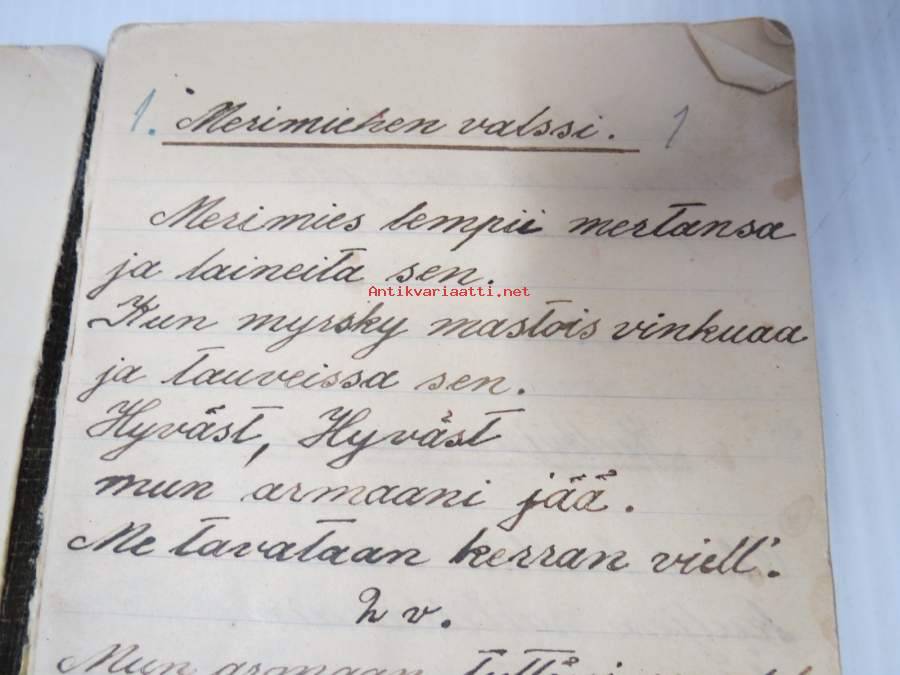 1. Merimiehen valssi. 1
Merimies lempii mertansa
ja laineita sen.
Antikvariaatti.net
Kun myrsky mastois vinkuaa
ja tauveissa sen.
Hyväst, Hyväst
mun armaani jää.
Me tavataan kerran viell'.
2 v.
Mun armaan